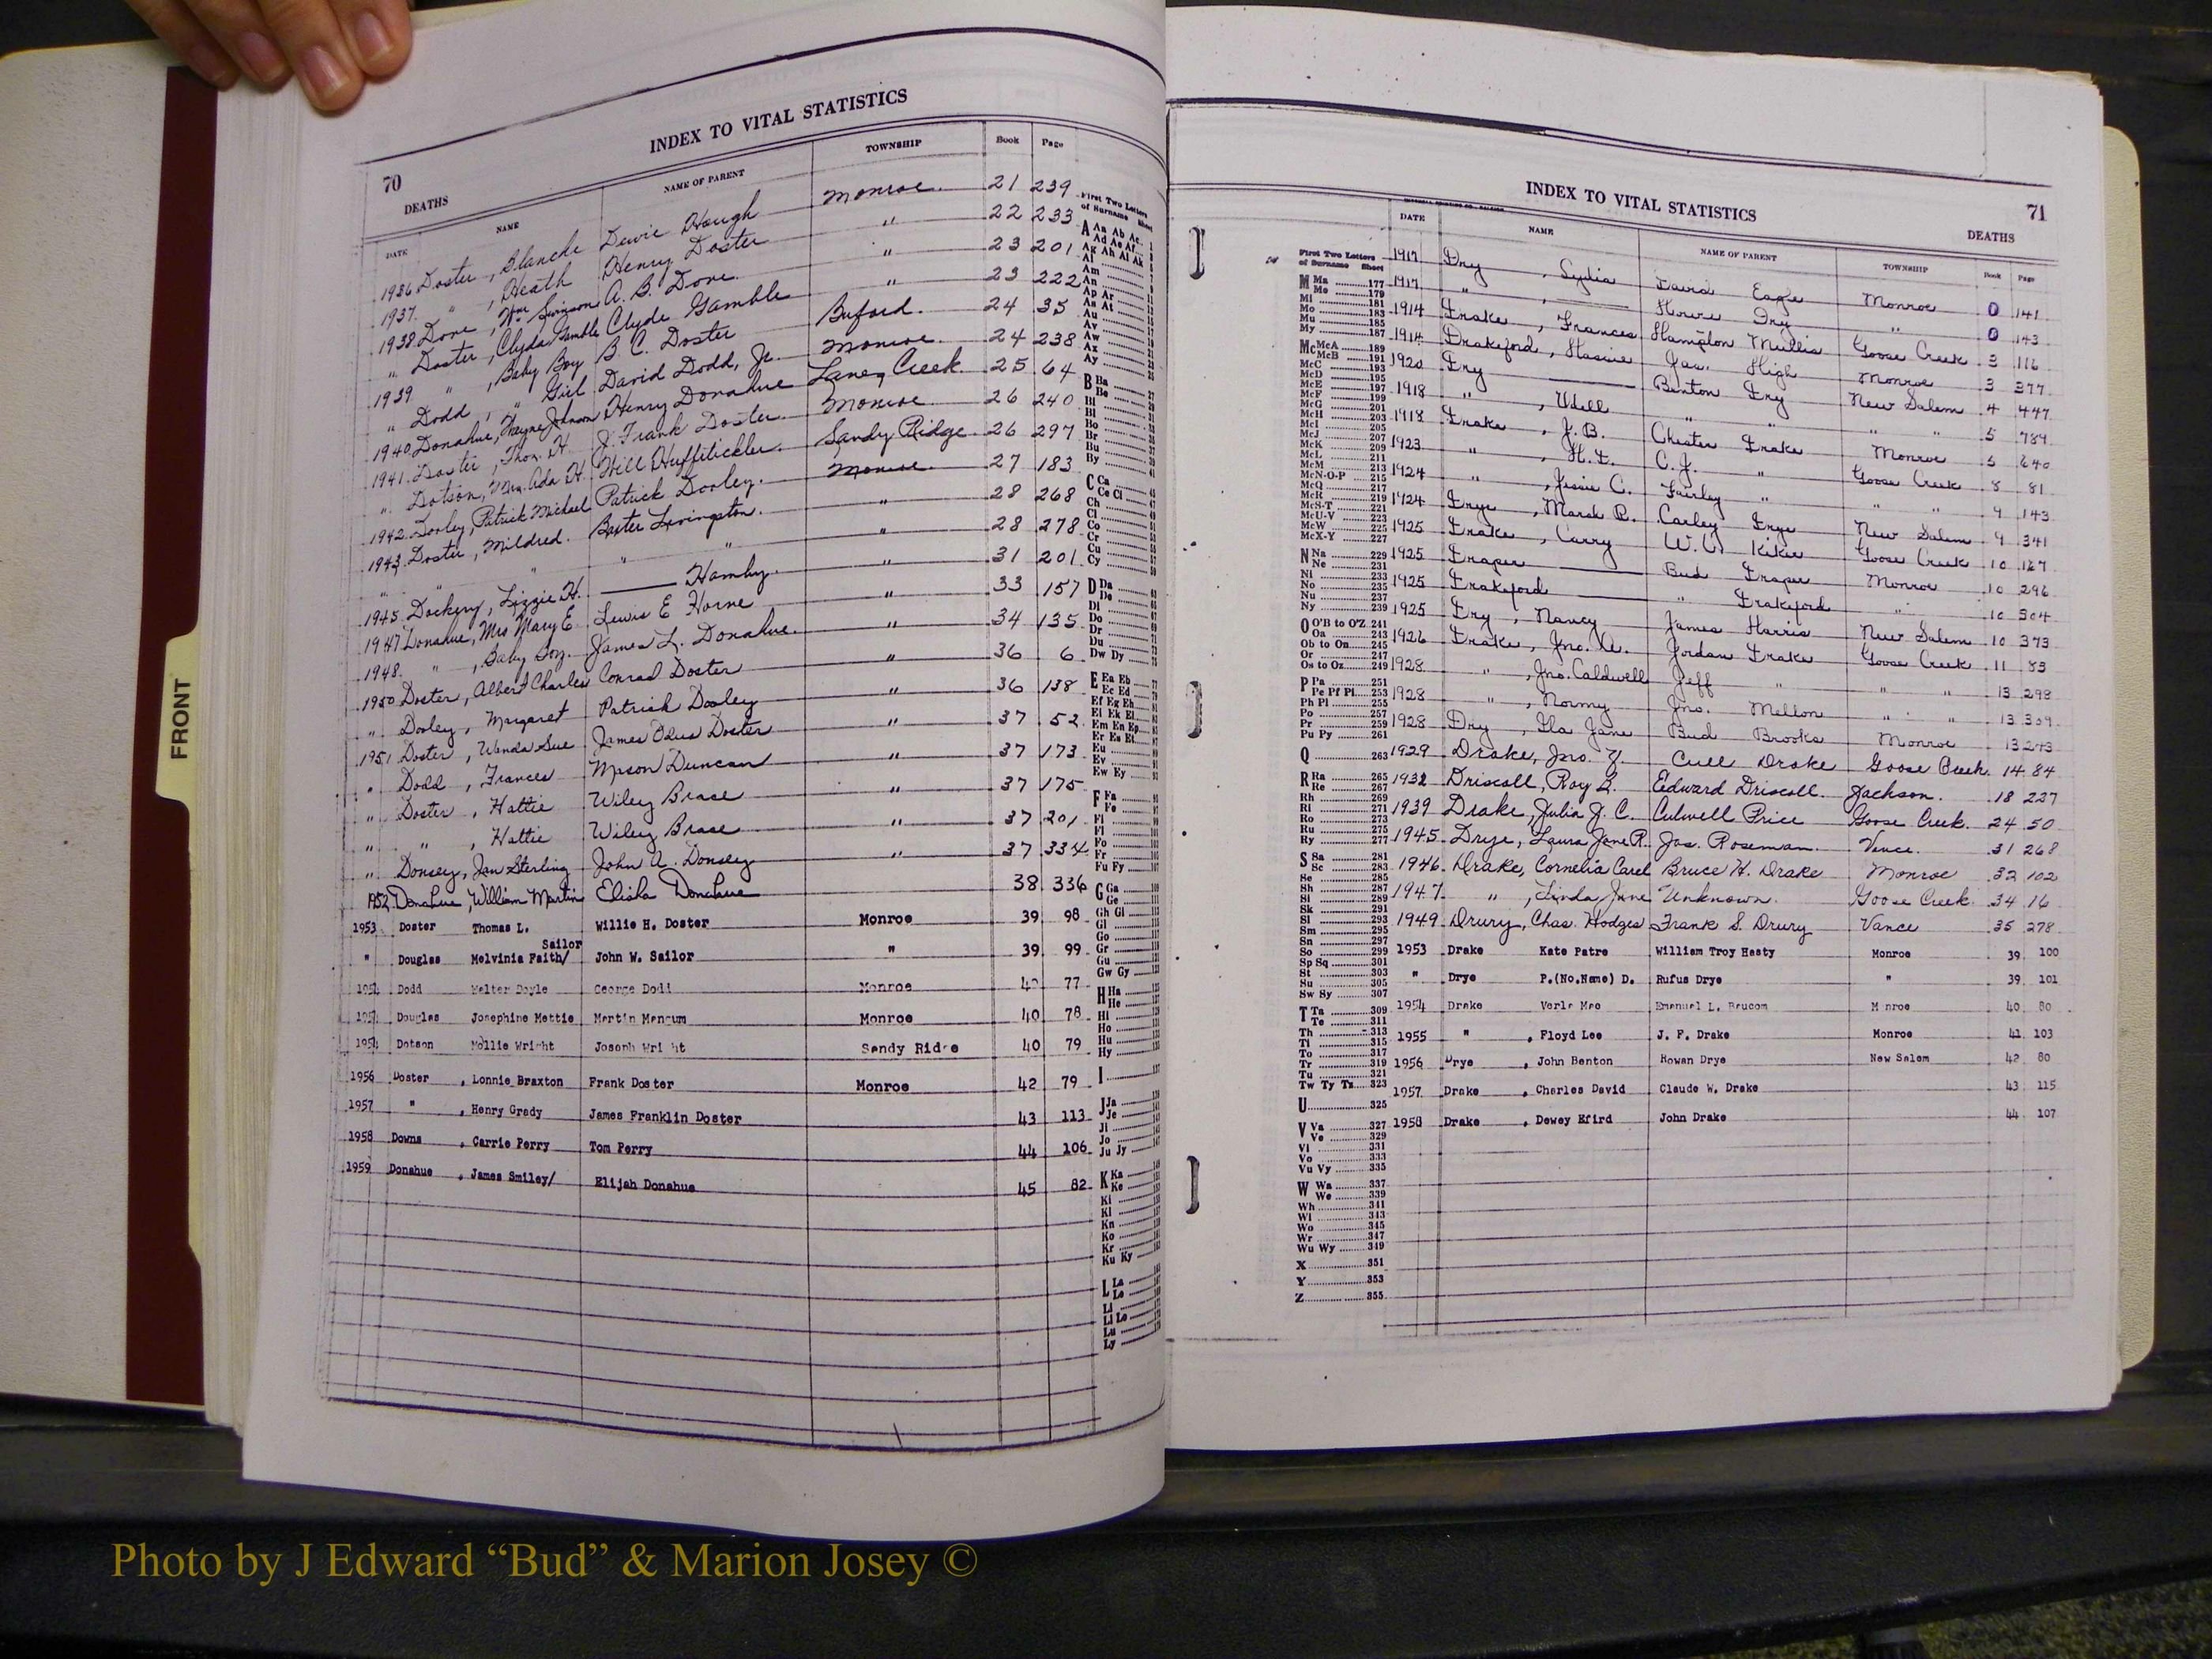 FRONT
INDEX TO VITAL STATISTICS
70
DEATHS
DATE NAME NAME OF PARENT TOWNSHIP Book Page
1936 Doster, Blanche Dewie Hough Monroe 21 239
1937 " , Heath Henry Doster " 22 233
1938 Dove, Wm A. B. Dove " 23 201
" Doster, Clyda Gamble Clyde Gamble " 23 222
1939 " , Baby Boy B. C. Doster Buford 24 35
" Dodd, " Girl David Dodd, Jr. Monroe 24 238
1940 Donahue, Wayne Johnson Henry Donahue Lanes Creek 25 64
1941 Doster, Thos. H. J. Frank Doster Monroe 26 240
" Dotson, Mrs. Ada H. Will Sandy Ridge 26 297
1942 Dooley, Patrick Michael Patrick Dooley Monroe 27 183
1943 Doster, Mildred Baxter Livingston " 28 268
" " " " " " 28 278
1945 Dockery, Lizzie H. Hamby " 31 201
1947 Donahue, Mrs Mary E Lewis E Horne " 33 157
1948 " , Baby Boy James L. Donahue " 34 135
1950 Doster, Albert Charles Conrad Doster " 36 6
" Dooley, Margaret Patrick Dooley " 36 138
1951 Doster, Wanda Sue James Odus Doster " 37 52
" Dodd, Frances Mason Duncan " 37 173
" Doster, Hattie Wiley Brace " 37 175
" " , Hattie Wiley Brace " 37 201
" Donsey, Jan Sterling John A. Donsey " 37 334
1952 Donahue, William Martin Elisha Donahue 38 336
1953 Doster Thomas L. Willie H. Doster Monroe 39 98
" Douglas Melvinia Faith/ Sailor John W. Sailor " 39 99
1954 Dodd Walter Doyle George Dodd Monroe 40 77
1954 Douglas Josephine Mettie Martin Mangum Monroe 40 78
1954 Dotson Mollie Wright Joseph Wright Sandy Ridge 40 79
1956 Doster , Lonnie Braxton Frank Doster Monroe 42 79
1957 " , Henry Grady James Franklin Doster 43 113
1958 Downs , Carrie Perry Tom Perry 44 106
1959 Donahue , James Smiley/ Elijah Donahue 45 82
First Two Letters of Surname Sheet
A Aa Ab Ac
Ad Ae Af
Ag Ah Ai Ak
Al
Am
An
Ap Ar
As At
Au
Av
Aw
Ax
Ay
B Ba
Be
Bi
Bl
Bo
Br
Bu
By
C Ca
Ce Ci
Ch
Cl
Co
Cr
Cu
Cy
D Da
De
Di
Do
Dr
Du
Dw Dy
E Ea Eb
Ec Ed
Ef Eg Eh
Ei Ek El
Em En Ep
Er Es Et
Eu
Ev
Ew Ey
F Fa
Fe
Fi
Fl
Fo
Fr
Fu Fy
G Ga
Ge
Gh Gi
Gl
Go
Gr
Gu
Gw Gy
H Ha
He
Hi
Ho
Hu
Hy
I
J Ja
Je
Ji
Jo
Ju Jy
K Ka
Ke
Ki
Kl
Kn
Ko
Kr
Ku Ky
L La
Le
Li
Ll Lo
Lu
Ly
INDEX TO VITAL STATISTICS
71
DEATHS
DATE NAME NAME OF PARENT TOWNSHIP Book Page
First Two Letters of Surname Sheet
M Ma 177
Me 179
Mi 181
Mo 183
Mu 185
My 187
Mc McA 189
McB 191
McC 193
McD 195
McE 197
McF 199
McG 201
McH 203
McI 205
McJ 207
McK 209
McL 211
McM 213
McN-O-P 215
McQ 217
McR 219
McS-T 221
McU-V 223
McW 225
McX-Y 227
N Na 229
Ne 231
Ni 233
No 235
Nu 237
Ny 239
O O'B to O'Z 241
Oa 243
Ob to On 245
Or 247
Os to Oz 249
P Pa 251
Pe Pf Pi 253
Ph Pl 255
Po 257
Pr 259
Pu Py 261
Q 263
R Ra 265
Re 267
Rh 269
Ri 271
Ro 273
Ru 275
Ry 277
S Sa 281
Sc 283
Se 285
Sh 287
Si 289
Sk 291
Sl 293
Sm 295
Sn 297
So 299
Sp Sq 301
St 303
Su 305
Sw Sy 307
T Ta 309
Te 311
Th 313
Ti 315
To 317
Tr 319
Tu 321
Tw Ty Tz 323
U 325
V Va 327
Ve 329
Vi 331
Vo 333
Vu Vy 335
W Wa 337
We 339
Wh 341
Wi 343
Wo 345
Wr 347
Wu Wy 349
X 351
Y 353
Z 355
1917 Dry, Lydia David Eagle Monroe 0 141
1917 " , Howre Dry " 0 143
1914 Drake, Frances Hampton Mullis Goose Creek 3 116
1914 Drakeford, Jas. High Monroe 3 377
1920 Dry Benton Dry New Salem 4 447
1918 " , Udell " " " " 5 784
1918 Drake, J. B. Chester Drake Monroe 5 640
1923 " , H. D. C. J. " Goose Creek 8 81
1924 " , Jessie C. Fairley " " " 9 143
1924 Drye, Marsh R. Carley Drye New Salem 9 341
1925 Drake, Carry W. V. Kiker Goose Creek 10 167
1925 Draper Bud Draper Monroe 10 296
1925 Drakeford " Drakeford " 10 304
1925 Dry, Nancy James Harris New Salem 10 373
1926 Drake, Jno. A. Jordan Drake Goose Creek 11 83
1928 " , Jno. Caldwell Jeff " " " 13 298
1928 " , Normy Jno. Mellon " " 13 309
1928 Dry, Ila Jane Bud Brooks Monroe 13 243
1929 Drake, Jno. Y. Cull Drake Goose Creek 14 84
1932 Driscoll, Roy L. Edward Driscoll Jackson 18 227
1939 Drake, Julia J. C. Culwell Price Goose Creek 24 50
1945 Drye, Laura Jane R. Jas. Roseman Vance 31 268
1946 Drake, Cornelia Carol Bruce H. Drake Monroe 32 102
1947 " , Linda June Unknown Goose Creek 34 16
1949 Drury, Chas. Hodges Frank S. Drury Vance 35 278
1953 Drake Kate Patre William Troy Hasty Monroe 39 100
" Drye P.(No.Name) D. Rufus Drye " 39 101
1954 Drake Verla Mae Emanuel L. Baucom M nroe 40 80
1955 " , Floyd Lee J. F. Drake Monroe 41 103
1956 Drye , John Benton Rowan Drye New Salem 42 80
1957 Drake , Charles David Claude W. Drake 43 115
1958 Drake , Dewey Efird John Drake 44 107
Photo by J Edward “Bud” & Marion Josey ©